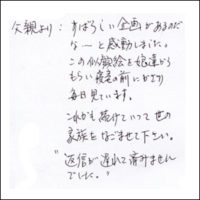 父親より：すばらしい企画があるのだ
な－と感動しました。
この似顔絵を娘達から
もらい寝室の前にかざり
毎日見ています。
これからも続けていって世の
家族をなごませて下さい。
"返信が遅れて済みません
でした。"